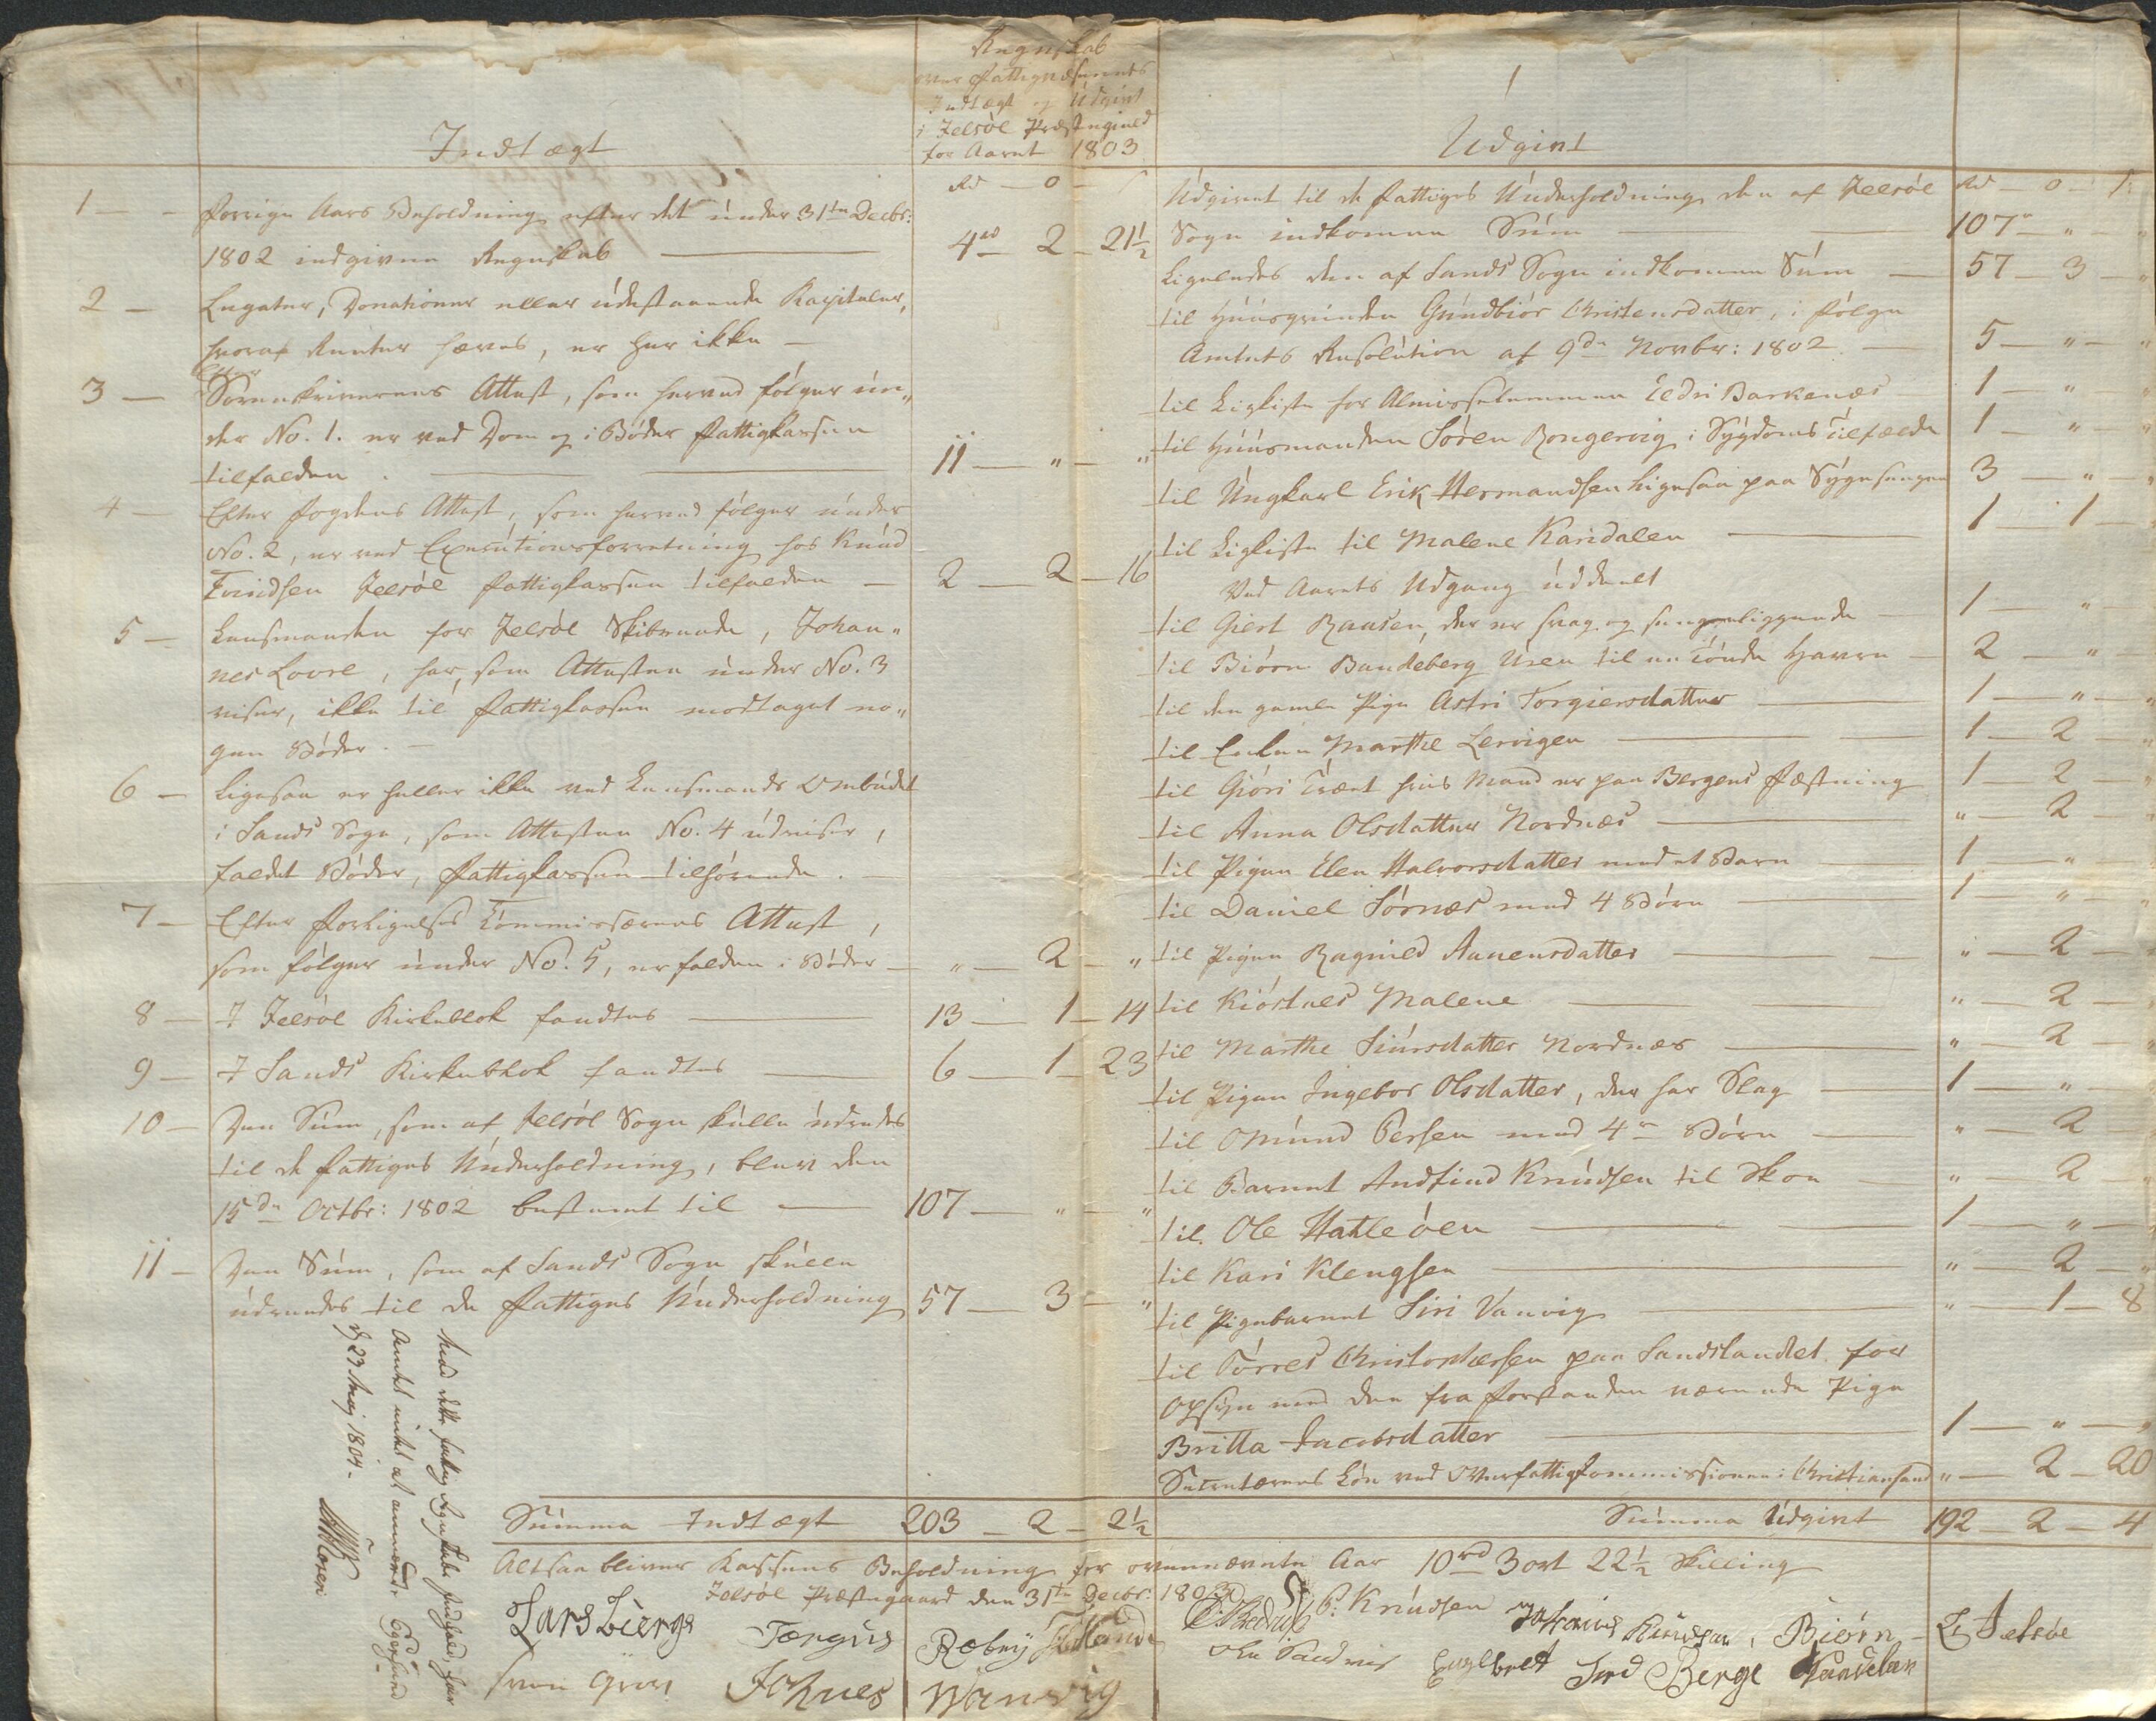 Regnskab
over Fattigvæsenets
Indtægt og Udgivt
i Jelsöe Præstegield
for Aaret 1803
Indtægt
Rd — o — s
1 — Forrige Aars Beholdning efter det under 31te Decbr:
1802 indgivne Regnskab — 40 — 2 — 21½
2 — Legater, Donationer eller udestaaende Kapitaler,
hvoraf Renter haves, er her ikke —
3 — Efter Sorenskriverens Attest, som herved fölger un„
der No. 1. er ved Dom og i Böder Fattigkassen
tilfalden . — 11 — „ — „
4 — Efter Fogdens Attest, som herved fölger under
No. 2, er ved Executionsforretning hos Knud
Evindsen Jelsöe Fattigkassen tilfalden — 2 — 2 — 16
5 — Lensmanden for Jelsöe Skibrende, Johan„
nes Lovre, har, som Attesten under No. 3
viser, ikke til Fattigkassen modtaget no„
gen Böder. —
6 — Ligesaa er heller ikke ved Lensmands Ombudet
i Sands Sogn, som Attesten No. 4 udviser,
faldet Böder, Fattigkassen tilhörende . —
7 — Efter Forligelses Commissærens Attest,
som fölger under No. 5, er falden i Böder — „ — 2 — „
8 — I Jelsöe Kirkeblok fandtes — 13 — 1 — 14
9 — I Sands Kirkeblok fandtes — 6 — 1 — 23
10 — Den Sum, som af Jelsöe Sogn skulle udredes
til de Fattiges Underholdning, blev den
15de Octbr: 1802 bestemt til — 107 — „ — „
11 — Den Sum, som af Sands Sogn skulle
udredes til de Fattiges Underholdning 57 — 3 — „
Summa Indtægt 203 — 2 — 2½
1
Udgivt
Rd — o — s
Udgivet til de Fattiges Underholdning den af Jelsöe
Sogn indkomne Sum — 107 — „ — „
Ligeledes den af Sands Sogn indkomne Sum — 57 — 3 — „
til Huusqvinden Gundbiör Christensdatter, i fölge
Amtets Resolution af 9de Novbr: 1802 — 5 — „ — „
til Ligkiste for Almisselemmen Eldri Barkenæs 1 — „ — „
til Huusmanden Sören Rongevig i Sygdoms Tilfælde 1 — „ — „
til Ungkarl Erik Hermandsen ligesaa paa Sygesengen 3 — „ — „
til Ligkiste til Malene Karidalen — 1 — 1 —
Ved Aarets Udgang uddeelt
til Giert Raasen, der er svag og sengeliggende — 1 — „ —
til Biörn Bandeberg Uren til en Tönde Havre — 2 — „ —
til den gamle Pige Astri Torgiersdatter — 1 — „ — „
til Enken Marthe Lervigen — 1 — 2 — „
til Giöri Tvæt hvis Mand er paa Bergens Fæstning 1 — 2 — „
til Anna Olsdatter Nordnæs — „ — 2 — „
til Pigen Elen Halvorsdatter med et Barn — 1 — „
til Daniel Sörnæs med 4 Börn — 1 — „ — „
til Pigen Ragnild Aanensdatter — „ — 2 —
til Kiöstnes Malene — „ — 2 —
til Marthe Siursdatter Nordnæs — „ — 2 — „
til Pigen Ingebor Olsdatter, der har Slag — 1 — „
til Omund Persen med 4re Börn — „ — 2
til Barnet Andfind Knudsen til Skoe — „ — 2 — „
til Ole Hatleöen — 1 — „ —
til Kari Klengsen — „ — 2 „
til Pigebarnet Siri Vanvig — „ — 1 — 8
til Törres Christophersen paa Sandslandet for
Opsyn med den fra Forstanden værende Pige
Britta Jacobsdatter — 1 — „ — „
Secretærens Lön ved Overfattigkommissionen i Christiansand „ — 2 — 20
Summa Udgivt 192 — 2 — 4
Altsaa bliver Kassens Beholdning for ovennævnte Aar 10rd 3 ort 22½ Skilling
Jelsöe Præstegaard den 31te Decbr: 1803
Lars Bierge Tergus Rebnij P: Knudsen Johanes Knudsen, Biörn L Jelsöe
Johnes Wanvig Ole Sandvig Engelbret Berge
Med dette fattig Regnskabs Indhold, har
Amtet intet at anmærke. Egersund
d. 23 Maj 1804.